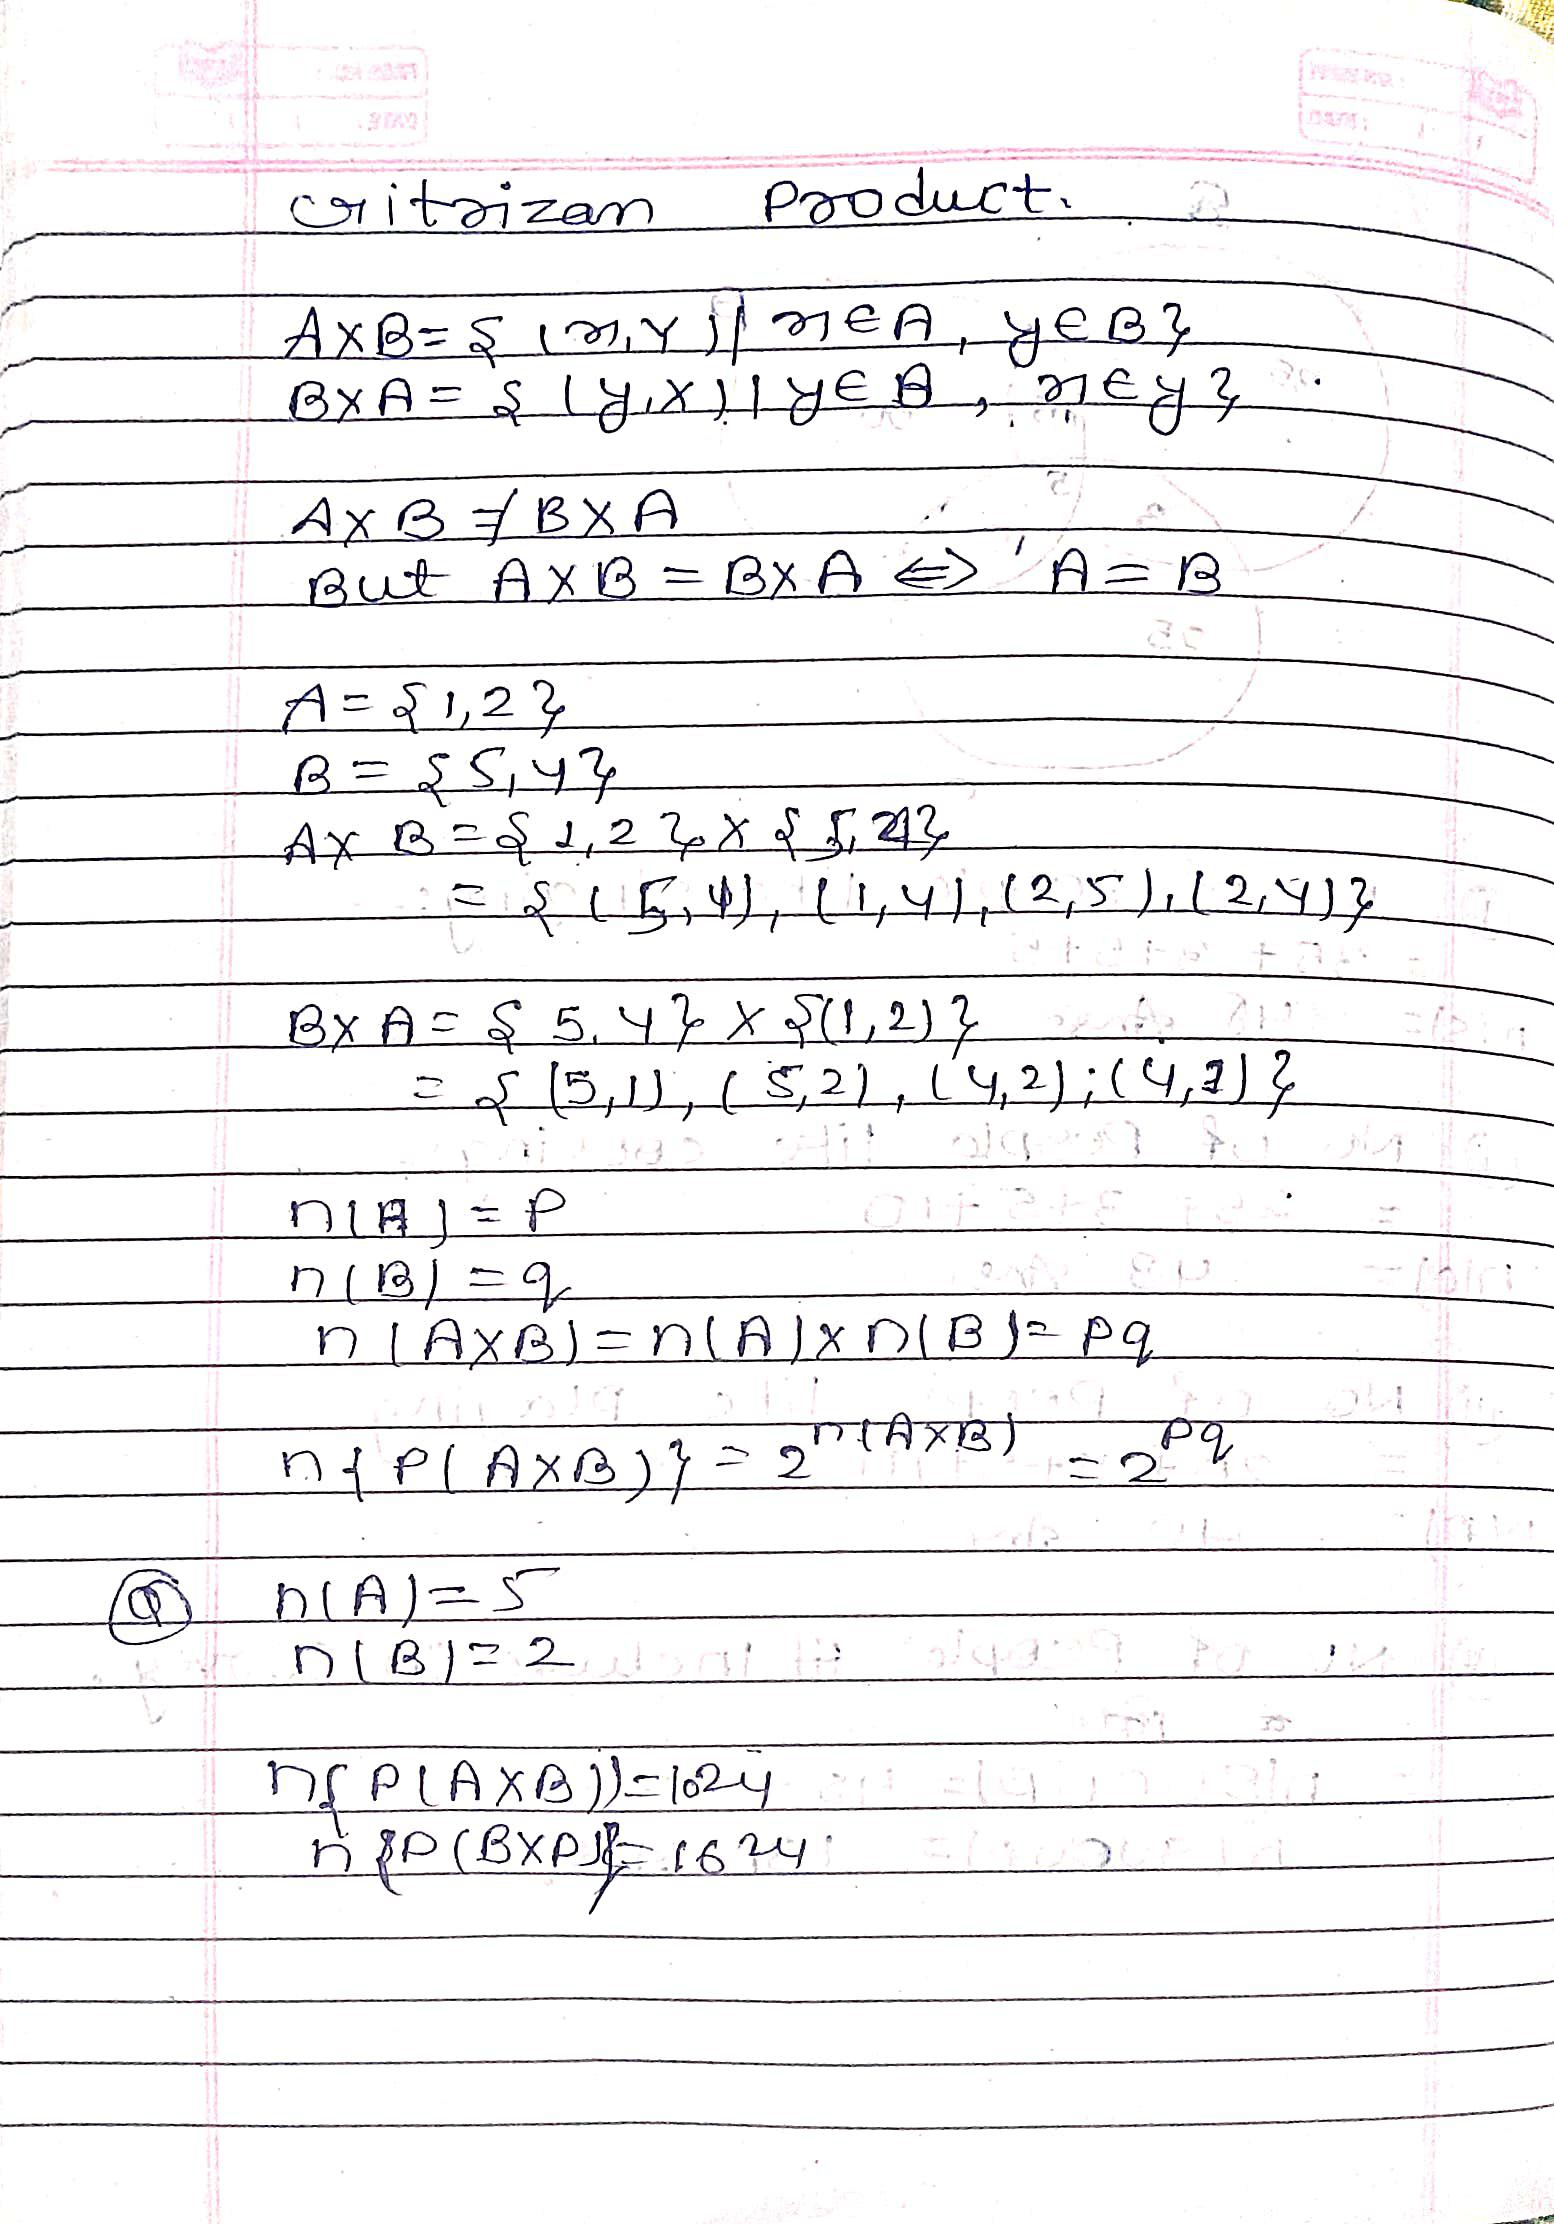 critrizan Product.
A×B={(x,y)|x∈A, y∈B}
B×A={(y,x)|y∈B, x∈y}
A×B≠B×A
But A×B=B×A⇔A=B
A={1,2}
B={5,4}
A×B={1,2}×{5,4}
={(5,4),(1,4),(2,5),(2,4)}
B×A={5,4}×{(1,2)}
={(5,1),(5,2),(4,2);(4,1)}
n(A)=P
n(B)=q
n(A×B)=n(A)×n(B)=pq
n{P(A×B)}=2^n(A×B)=2^pq
Q n(A)=5
n(B)=2
n{P(A×B))=1024
n{P(B×P)}=1024